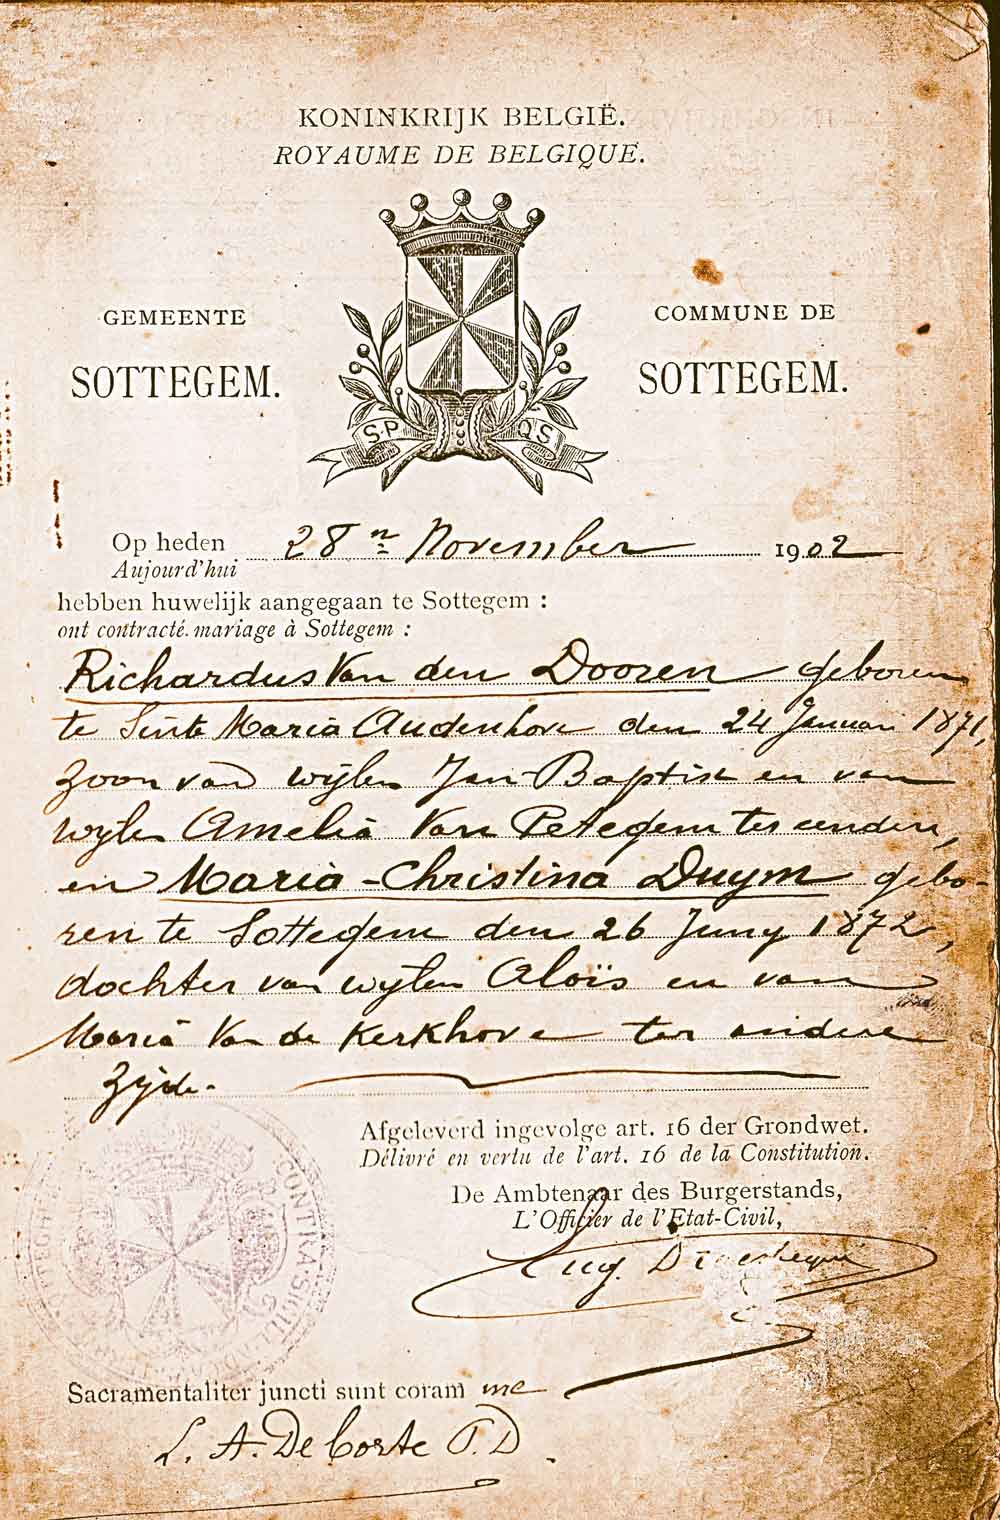 KONINKRIJK BELGIË.
ROYAUME DE BELGIQUE.
GEMEENTE
SOTTEGEM.
COMMUNE DE
SOTTEGEM.
S.P
Q S
Op heden 28n November 1902
Aujourd'hui
hebben huwelijk aangegaan te Sottegem :
ont contracté mariage à Sottegem :
Richardus Van den Dooren geboren
te Sinte Maria Audenhove den 24 Januari 1871,
zoon van wijlen Jan-Baptist en van
wylen Amelia Van Petegem ter eender,
en Maria-Christina Duym gebo-
ren te Sottegem den 26 Juny 1872,
dochter van wylen Aloïs en van
Maria Van de Kerkhove ter andere
zijde.
Afgeleverd ingevolge art. 16 der Grondwet.
Délivré en vertu de l'art. 16 de la Constitution.
De Ambtenaar des Burgerstands,
L'Officier de l'Etat-Civil,
Eug.
CONTRA SIGILL
Sacramentaliter juncti sunt coram me
L. A. De Corte P.D.